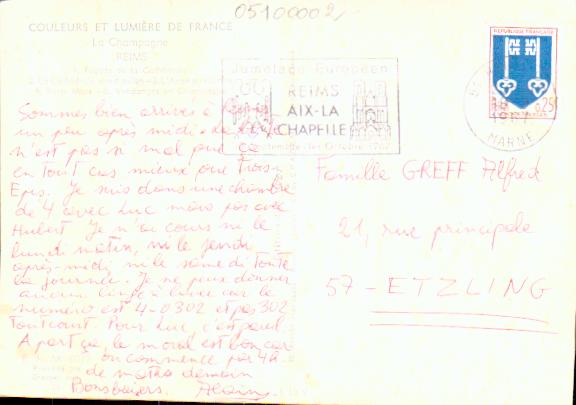 05100002
COULEURS ET LUMIÈRE DE FRANCE
La Champagne
REIMS
Jumelage Européen
REIMS
AIX-LA
CHAPELLE
1967
REPUBLIQUE FRANÇAISE
0,25
MARNE
Sommes bien arrivés à Reims
un peu après midi
n'est pas si mal que ça
en tout cas mieux que Trois
Epis. Je suis dans une chambre
de 4 avec Luc mais pas avec
Hubert. Je n'ai cours ni le
lundi matin, ni le jeudi
après-midi, ni le samedi toute
la journée. Je ne peux donner
aucun linge à laver car le
numéro est 4-0302 et pas 302
tout court. Pour Luc, c'est pareil
A part ça, le moral est bon car
on commence par 4h
de maths demain
Bons baisers Alain
Famille GREFF Alfred
21, rue principale
57 - ETZLING